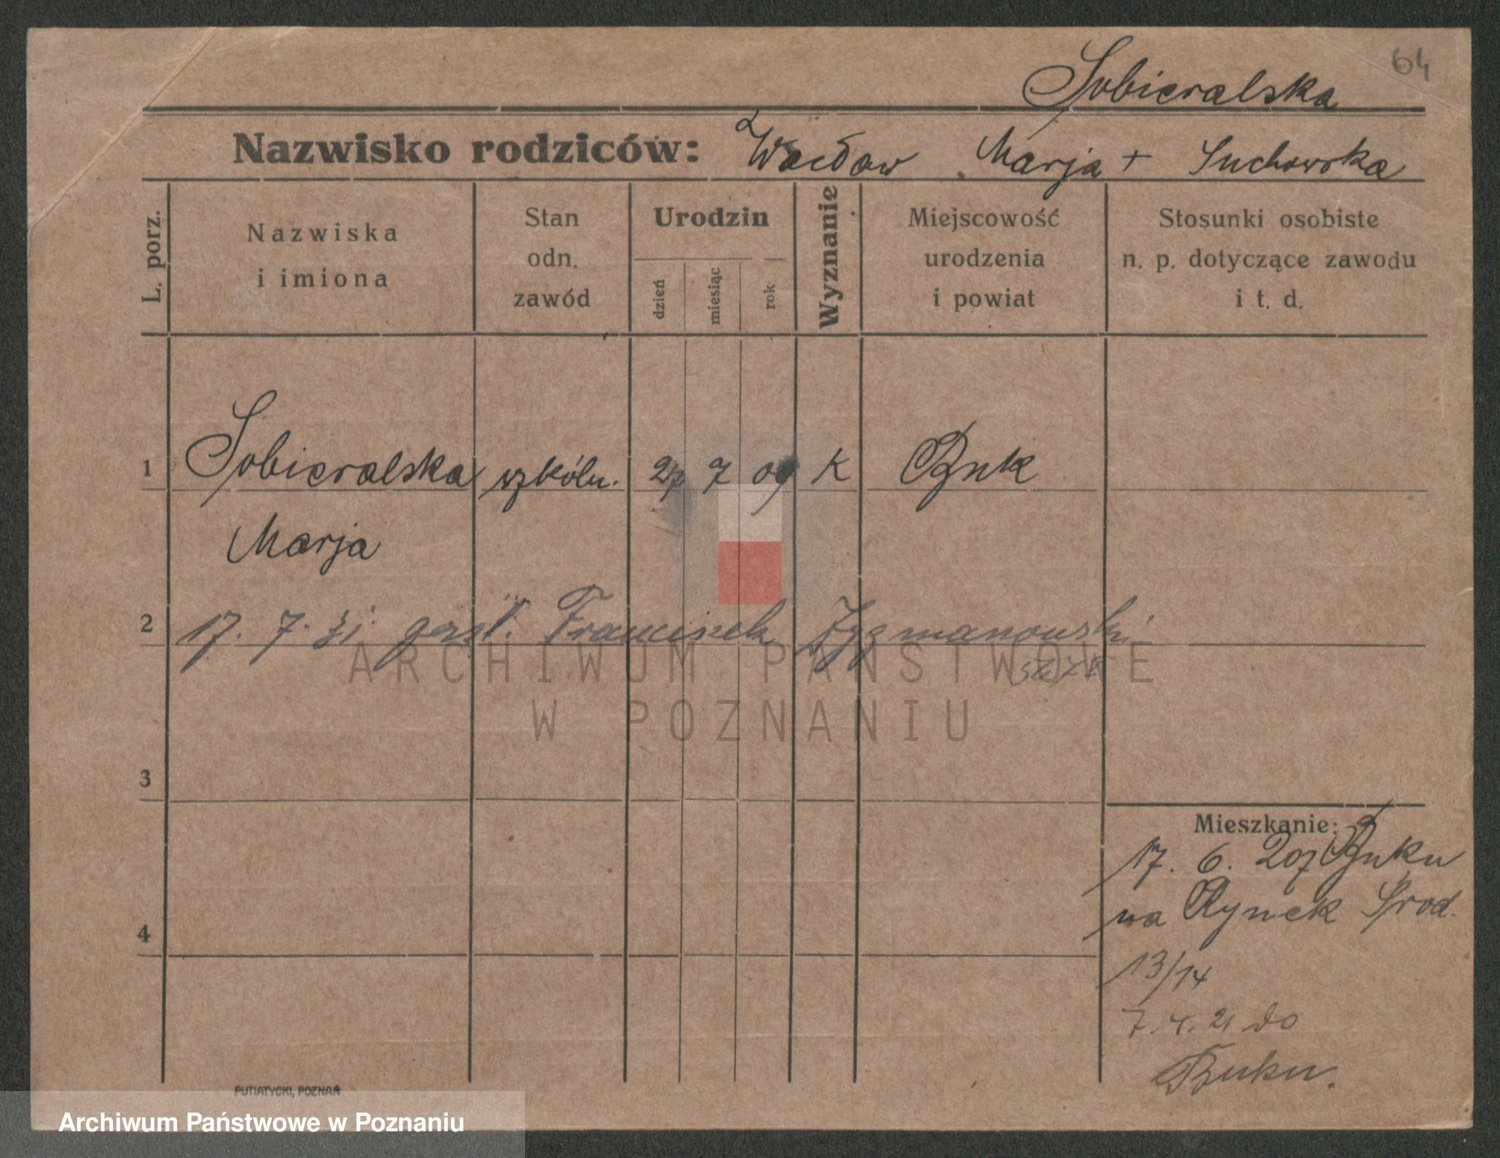 64
Sobieralska
Nazwisko rodziców: Wacław Marja + Suchowska
L. porz.
Nazwiska
i imiona
Stan
odn.
zawód
Urodzin
dzień
miesiąc
rok
Wyznanie
Miejscowość
urodzenia
i powiat
Stosunki osobiste
n. p. dotyczące zawodu
i t. d.
1 Sobieralska szkóln. 27 7 09 K Buk
Marja
2 17. 7. Franciszek Zygmanowski
3
Mieszkanie:
17. 6. 20 z Buku
na Rynek Śród.
4
13/14
7. 4. 21 do
Buku.
PUTIATYCKI, POZNAŃ
ARCHIWUM PAŃSTWOWE
W POZNANIU
Archiwum Państwowe w Poznaniu